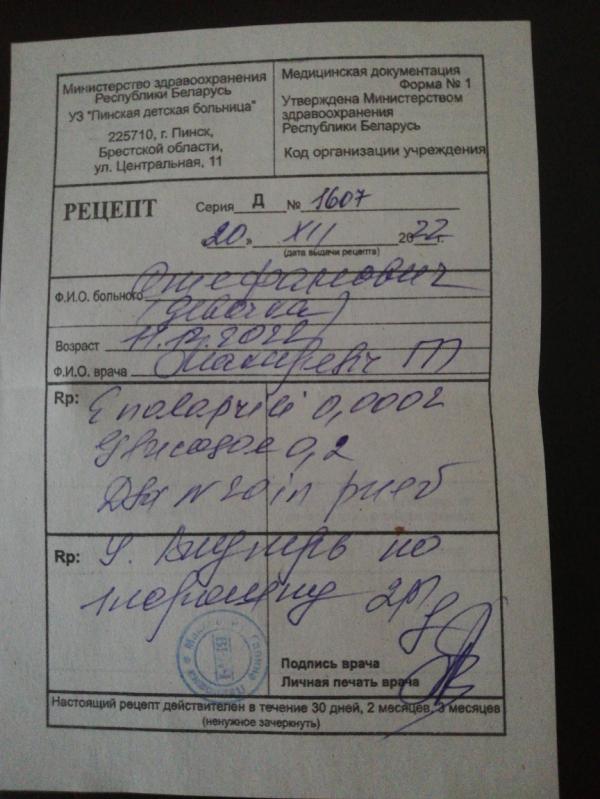 Министерство здравоохранения
Республики Беларусь
УЗ "Пинская детская больница"
225710, г. Пинск,
Брестской области,
ул. Центральная, 11
Медицинская документация
Форма № 1
Утверждена Министерством
здравоохранения
Республики Беларусь
Код организации учреждения
РЕЦЕПТ Серия Д № 1607
«20» XII 2022 г.
(дата выдачи рецепта)
Ф.И.О. больного Стефанович
(девочка)
Возраст 11.12.2022
Ф.И.О. врача
Rp: Enalaprili 0,0002
Glucosae 0,2
N 20 in
Rp: S. Внутрь по
1 порошку 2р
Подпись врача
Личная печать врача
Настоящий рецепт действителен в течение 30 дней, 2 месяцев, 3 месяцев
(ненужное зачеркнуть)